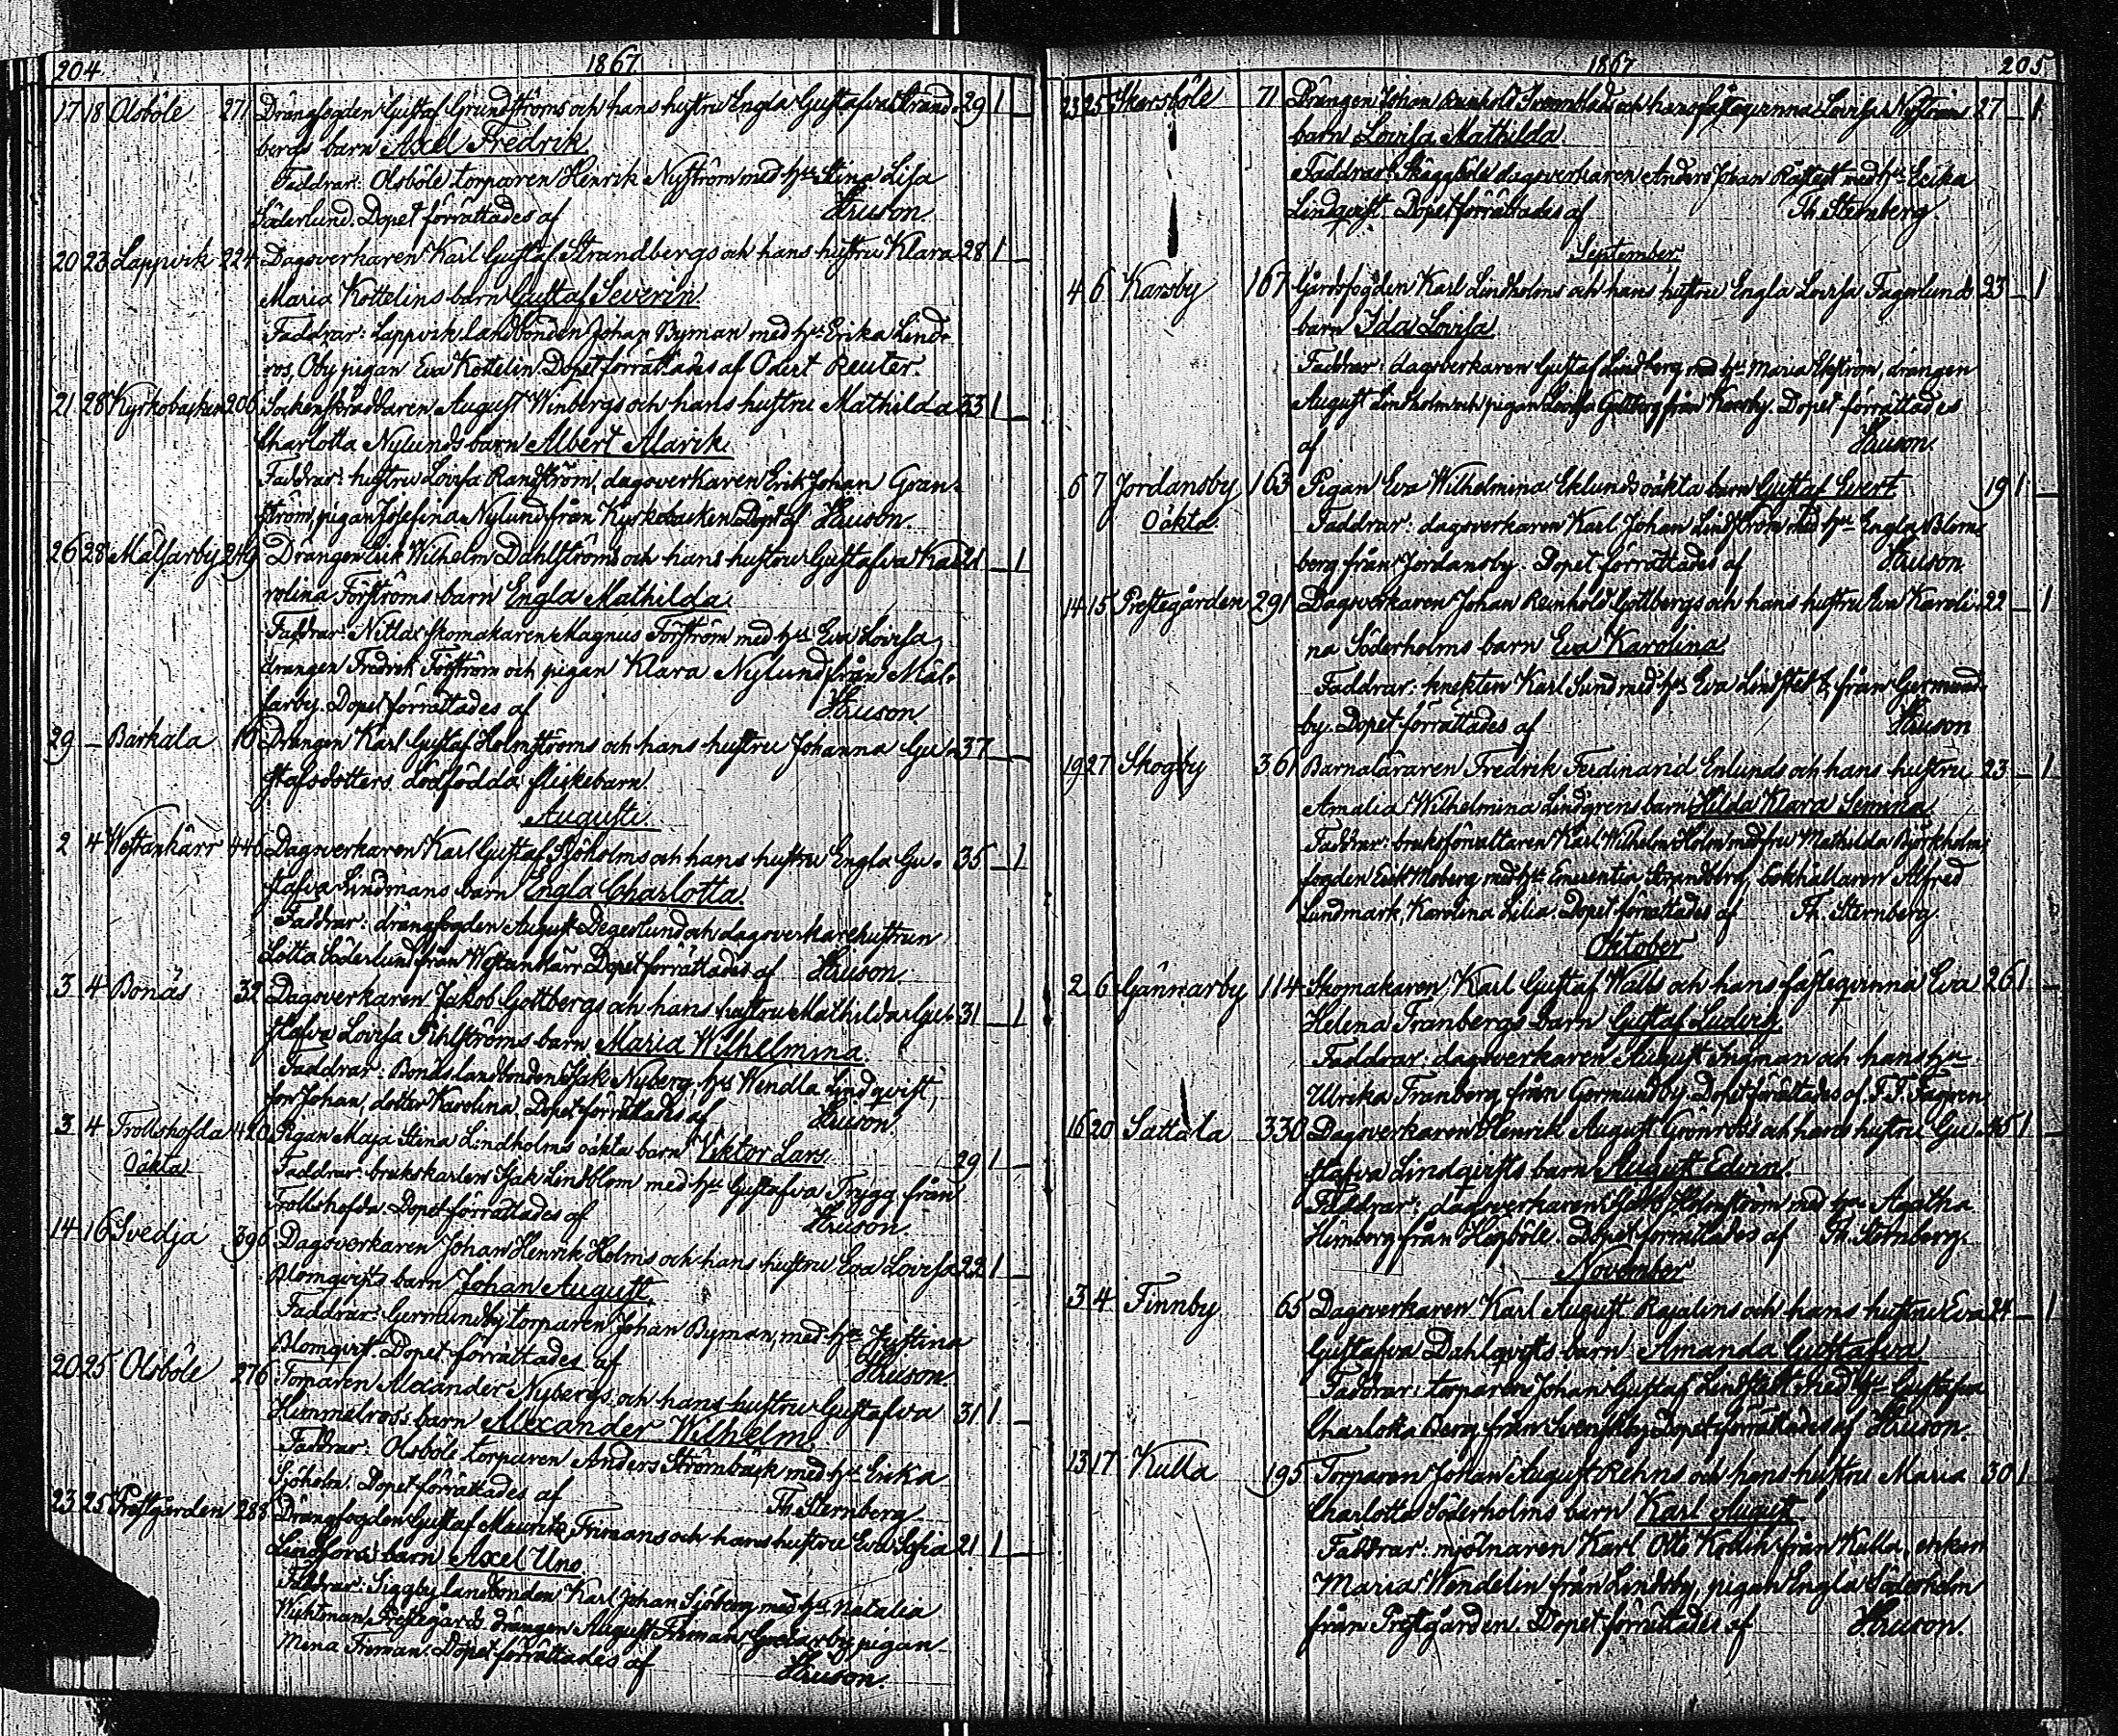 204 1867
17 18 Olsböle 271 Drängfogden Gustaf Grundströms och hans hustru Engla Gustafva Strand- 29 1
bergs barn Axel Fredrik.
Faddrar: Olsböle torparen Henrik Nyström med hu Stina Lisa
Söderlund. Dopet förrättades af Hruson.
20 23 Lappvik 224 Dagsverkaren Karl Gustaf Strandbergs och hans hustru Klara 28 1 _
Maria Kottelins barn Gustaf Severin.
Faddrar: Lappvik landbonden Johan Byman med hu Erika Lind-
ros, Oby pigan Eva Kottelin. Dopet förrättades af Odert Reuter.
21 28 Kyrkobacken 206 Sockenskräddaren August Winbergs och hans hustru Mathilda 33 1 _
Charlotta Nylunds barn Albert Alarik.
Faddrar: hustru Lovisa Randström, dagsverkaren Erik Johan Gran-
ström, pigan Josefina Nylund från Kyrkobacken. Dopet af Hruson.
26 28 Målfarby 249 Drängen Erik Wilhelm Dahlströms och hans hustru Gustafva Ka- 21 _ 1
rolina Förströms barn Engla Mathilda.
Faddrar: Nitlax skomakaren Magnus Förström med hu Eva Lovisa,
drängen Fredrik Förström och pigan Klara Nylund från Mål-
farby. Dopet förrättades af Hruson.
29 _ Barkala 10 Drängen Karl Gustaf Holmströms och hans hustru Johanna Gu- 37 _ _
stafsdotters dödfödda flickebarn.
Augusti.
2 4 Westankärr 446 Dagsverkaren Karl Gustaf Sjöholms och hans hustru Engla Gu- 35 _ 1
stafva Lindmans barn Engla Charlotta.
Faddrar: drängfogden August Degerlund och dagsverkarehustrun
Lotta Söderlund från Westankärr. Dopet förrättades af Hruson.
3 4 Bonäs 32 Dagsverkaren Jakob Gottbergs och hans hustru Mathilda Gu- 31 _ 1
stafva Lovisa Pihlströms barn Maria Wilhelmina.
Faddrar: Bonäs landbonden Isak Nyberg, hu Wendla Lindqvist,
son Johan, dotter Karolina. Dopet förrättades af Hruson.
3 4 Trollshofda 420 Pigan Maja Stina Lindholms oäkta barn Viktor Lars 29 1 _
Oäkta Faddrar: brukskarlen Isak Lindblom med hu Gustafva Trygg från
Trollshofda. Dopet förrättades af Hruson.
14 16 Svedja 396 Dagsverkaren Johan Henrik Holms och hans hustru Eva Lovisa 22 1 _
Blomqvists barn Johan August.
Faddrar: Germundby torparen Johan Byman, med hu Justina
Blomqvist. Dopet förrättades af Hruson.
20 25 Olsböle 276 Torparen Alexander Nybergs och hans hustru Gustafva 31 1 _
Himmelroos barn Alexander Wilhelm.
Faddrar: Olsböle torparen Anders Strömbäck med hu Erika
Sjöholm. Dopet förrättades af Th. Sternberg
23 25 Prestgården 288 Drängfogden Gustaf Mauritz Frimans och hans hustru Eva Sofia 21 1 _
Lindfors barn Axel Uno
Faddrar: Siggby landbonden Karl Johan Sjöberg med hu Natalia
Wichtman, Prestegårds drängen August Friman, pigan
Mina Friman. Dopet förrättades af Hruson.
1867 205
23 25 Skarsböle 71 Drängen Johan Reinhold Svenblads och hans fästeqvinna Lovisa Nyströms 27 _ 1
barn Lovisa Mathilda
Faddrar: Skäggböle dagsverkaren Anders Johan med hu Erika
Lindqvist. Dopet förrättades af Th. Sternberg.
September
4 6 Karsby 167 Gårdsfogden Karl Lindholms och hans hustru Engla Lovisa Fagerlunds 23 _ 1
barn Ida Lovisa
Faddrar: dagsverkaren Gustaf Lindberg med hu Maria Ekström, drängen
August Lindholm och pigan Lovisa Gottberg från Karsby. Dopet förrättades
af Hruson.
6 7 Jordansby 163 Pigan Eva Wilhelmina Eklunds oäkta barn Gustaf Evert 19 1 _
Oäkta Faddrar: dagsverkaren Karl Johan Lindström med hu Engla Blom-
berg från Jordansby. Dopet förrättades af Hruson
14 15 Prestegården 291 Dagsverkaren Johan Reinhold Gottbergs och hans hustru Eva Karoli- 22 _ 1
na Söderholms barn Eva Karolina
Faddrar: knekten Karl Sund med hu Eva Lindstedt, från Germund-
by. Dopet förrättades af Hruson
19 27 Skogby 361 Barnaläraren Fredrik Ferdinand Enlunds och hans hustru 23 _ 1
Amalia Wilhelmina Lindgrens barn Hilda Klara Semina
Faddrar: bruksförvaltaren Karl Wilhelm Holm med fru Mathilda Björkholm,
fogden Erik Moberg med hu Emerentia Strandberg, bokhållaren Alfred
Lundmark, Karolina Lilia. Dopet förrättades af Th. Sternberg.
Oktober
2 6 Gännarby 114 Skomakaren Karl Gustaf Walls och hans fästeqvinna Eva 26 1 _
Helena Franbergs barn Gustaf Ludvig.
Faddrar: dagsverkaren August Ingman och hans hu
Ulrika Franberg från Germundby. Dopet förrättades af F. F. Fagrén.
16 20 Sattala 330 Dagsverkaren Henrik August Grönroos och hans hustru Gu- 45 1 _
stafva Lindqvists barn August Edvin.
Faddrar: dagsverkaren Holmström med hu Agatha
Himberg från Högböle. Dopet förrättades af Th. Sternberg.
November
3 4 Finnby 65 Dagsverkaren Karl August Rajalins och hans hustru Eva 24 _ 1
Gustafva Dahlqvists barn Amanda Gustafva
Faddrar: torparen Johan Gustaf Lindstedt med hu Gustafva
Charlotta Berg från Svenskby. Dopet förrättades af Hruson.
13 17 Kulla 195 Torparen Johan August Rehns och hans hustru Maria 30 1
Charlotta Söderholms barn Karl August
Faddrar: mjölnaren Karl Otto från Kulla, enkan
Maria Wendelin från Lindsby, pigan Engla Söderholm
från Prestgården. Dopet förrättades af Hruson.